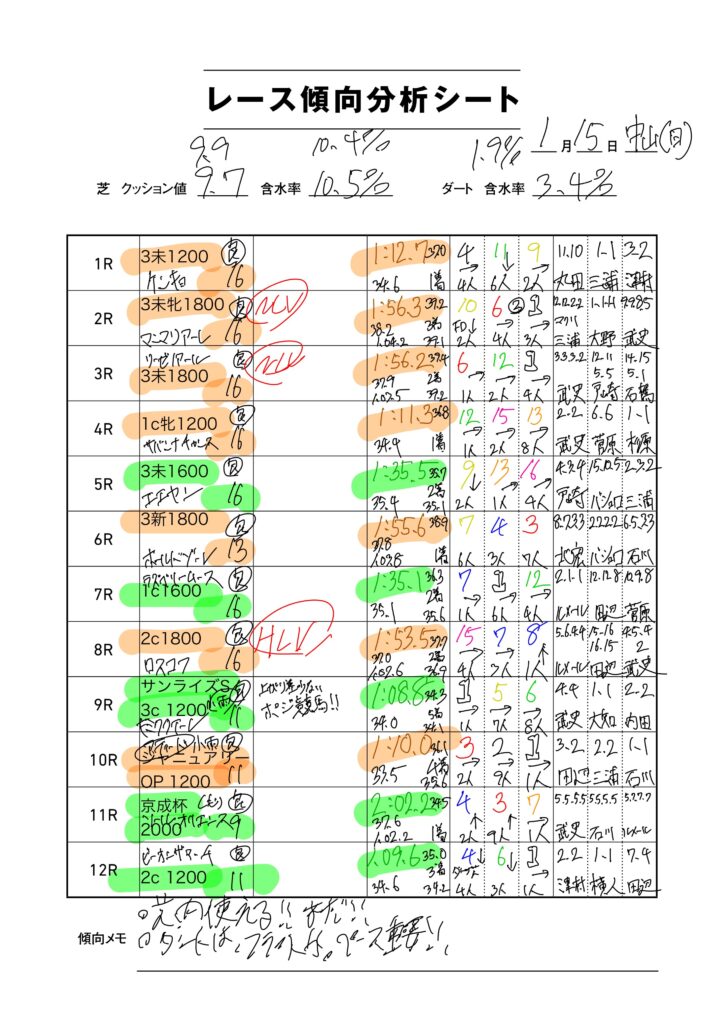 レース傾向分析シート
9.9 10.4% 1.9% 1月15日 中山(日)
芝 クッション値 9.7 含水率 10.5% ダート 含水率 3.4%
1R 3未1200 16 1:12.7 37.0 34.6 1着 4 11 9 4人 6人 2人 11.10 1-1 3-2 丸田 三浦 津村
2R 3未牝1800 マニマリアーレ 16 MLV 1:56.3 39.2 38.2 3着 1.04.2 39.1 10 6 ② 1 2人 4人 3人 1-1-1-1 三浦 大野 武史
3R 3未1800 16 1:56.2 37.4 37.9 2着 1.07.5 39.2 6 12 1 1人 2人 4人 3.3.3.2 12.11 5.5 14.15 5.1 武史 戸崎 石橋
4R 1c牝1200 16 1:11.3 36.8 34.4 1着 12 15 13 1人 2人 8人 2-2 6.6 1-1 武史 菅原 杉原
5R 3未1600 エエヤン 16 1:35.5 35.7 35.4 2着 35.1 9 13 16 2人 1人 4人 戸崎 バシュロ 三浦
6R 3新1800 13 1:55.6 38.9 37.8 1着 7 4 3 6人 3人 7人 8.7.3.3 2.2.2.2 6.5.3.3 北宏 バシュロ 石川
7R ラズベリームース 1c1600 16 1:35.1 36.3 35.1 2着 35.6 7 1 12 1人 6人 4人 2.1.1 12.12.8 10.9.8 ルメール 田辺 菅原
8R 2c1800 ロスコフ 16 HLV 1:53.5 37.7 37.0 2着 1.02.6 36.9 15 7 8 4人 2人 1人 5.6.4.4 15-16 16.15 4.5.4 2 ルメール 田辺 武史
9R サンライズS 小雨 3c 1200 11 上がり 使えない ポジ競馬!! 1:08.8 34.3 34.0 5着 34.1 1 5 6 1人 7人 8人 4.4 1.1 2-2 武史 大知 内田
10R 小雨 ジャニュアリー OP 1200 11 1:10.0 36.1 33.5 4着 35.6 3 2 1 2人 9人 1人 3-2 2.2 1-1 田辺 三浦 石川
11R 京成杯 2000 9 2:02.2 34.5 37.6 1.02.2 1着 4 3 7 2人 9人 1人 5.5.5.5 5.5.5.5 5.7.7.7 武史 石川 ルメール
12R 2c 1200 11 1.09.6 35.0 34.6 3着 34.2 4 6 1 4人 3人 1人 2.2 1-1 7-4 津村 横人 田辺
傾向メモ 内使える!! まだ!!
ダートは ペース重要!!